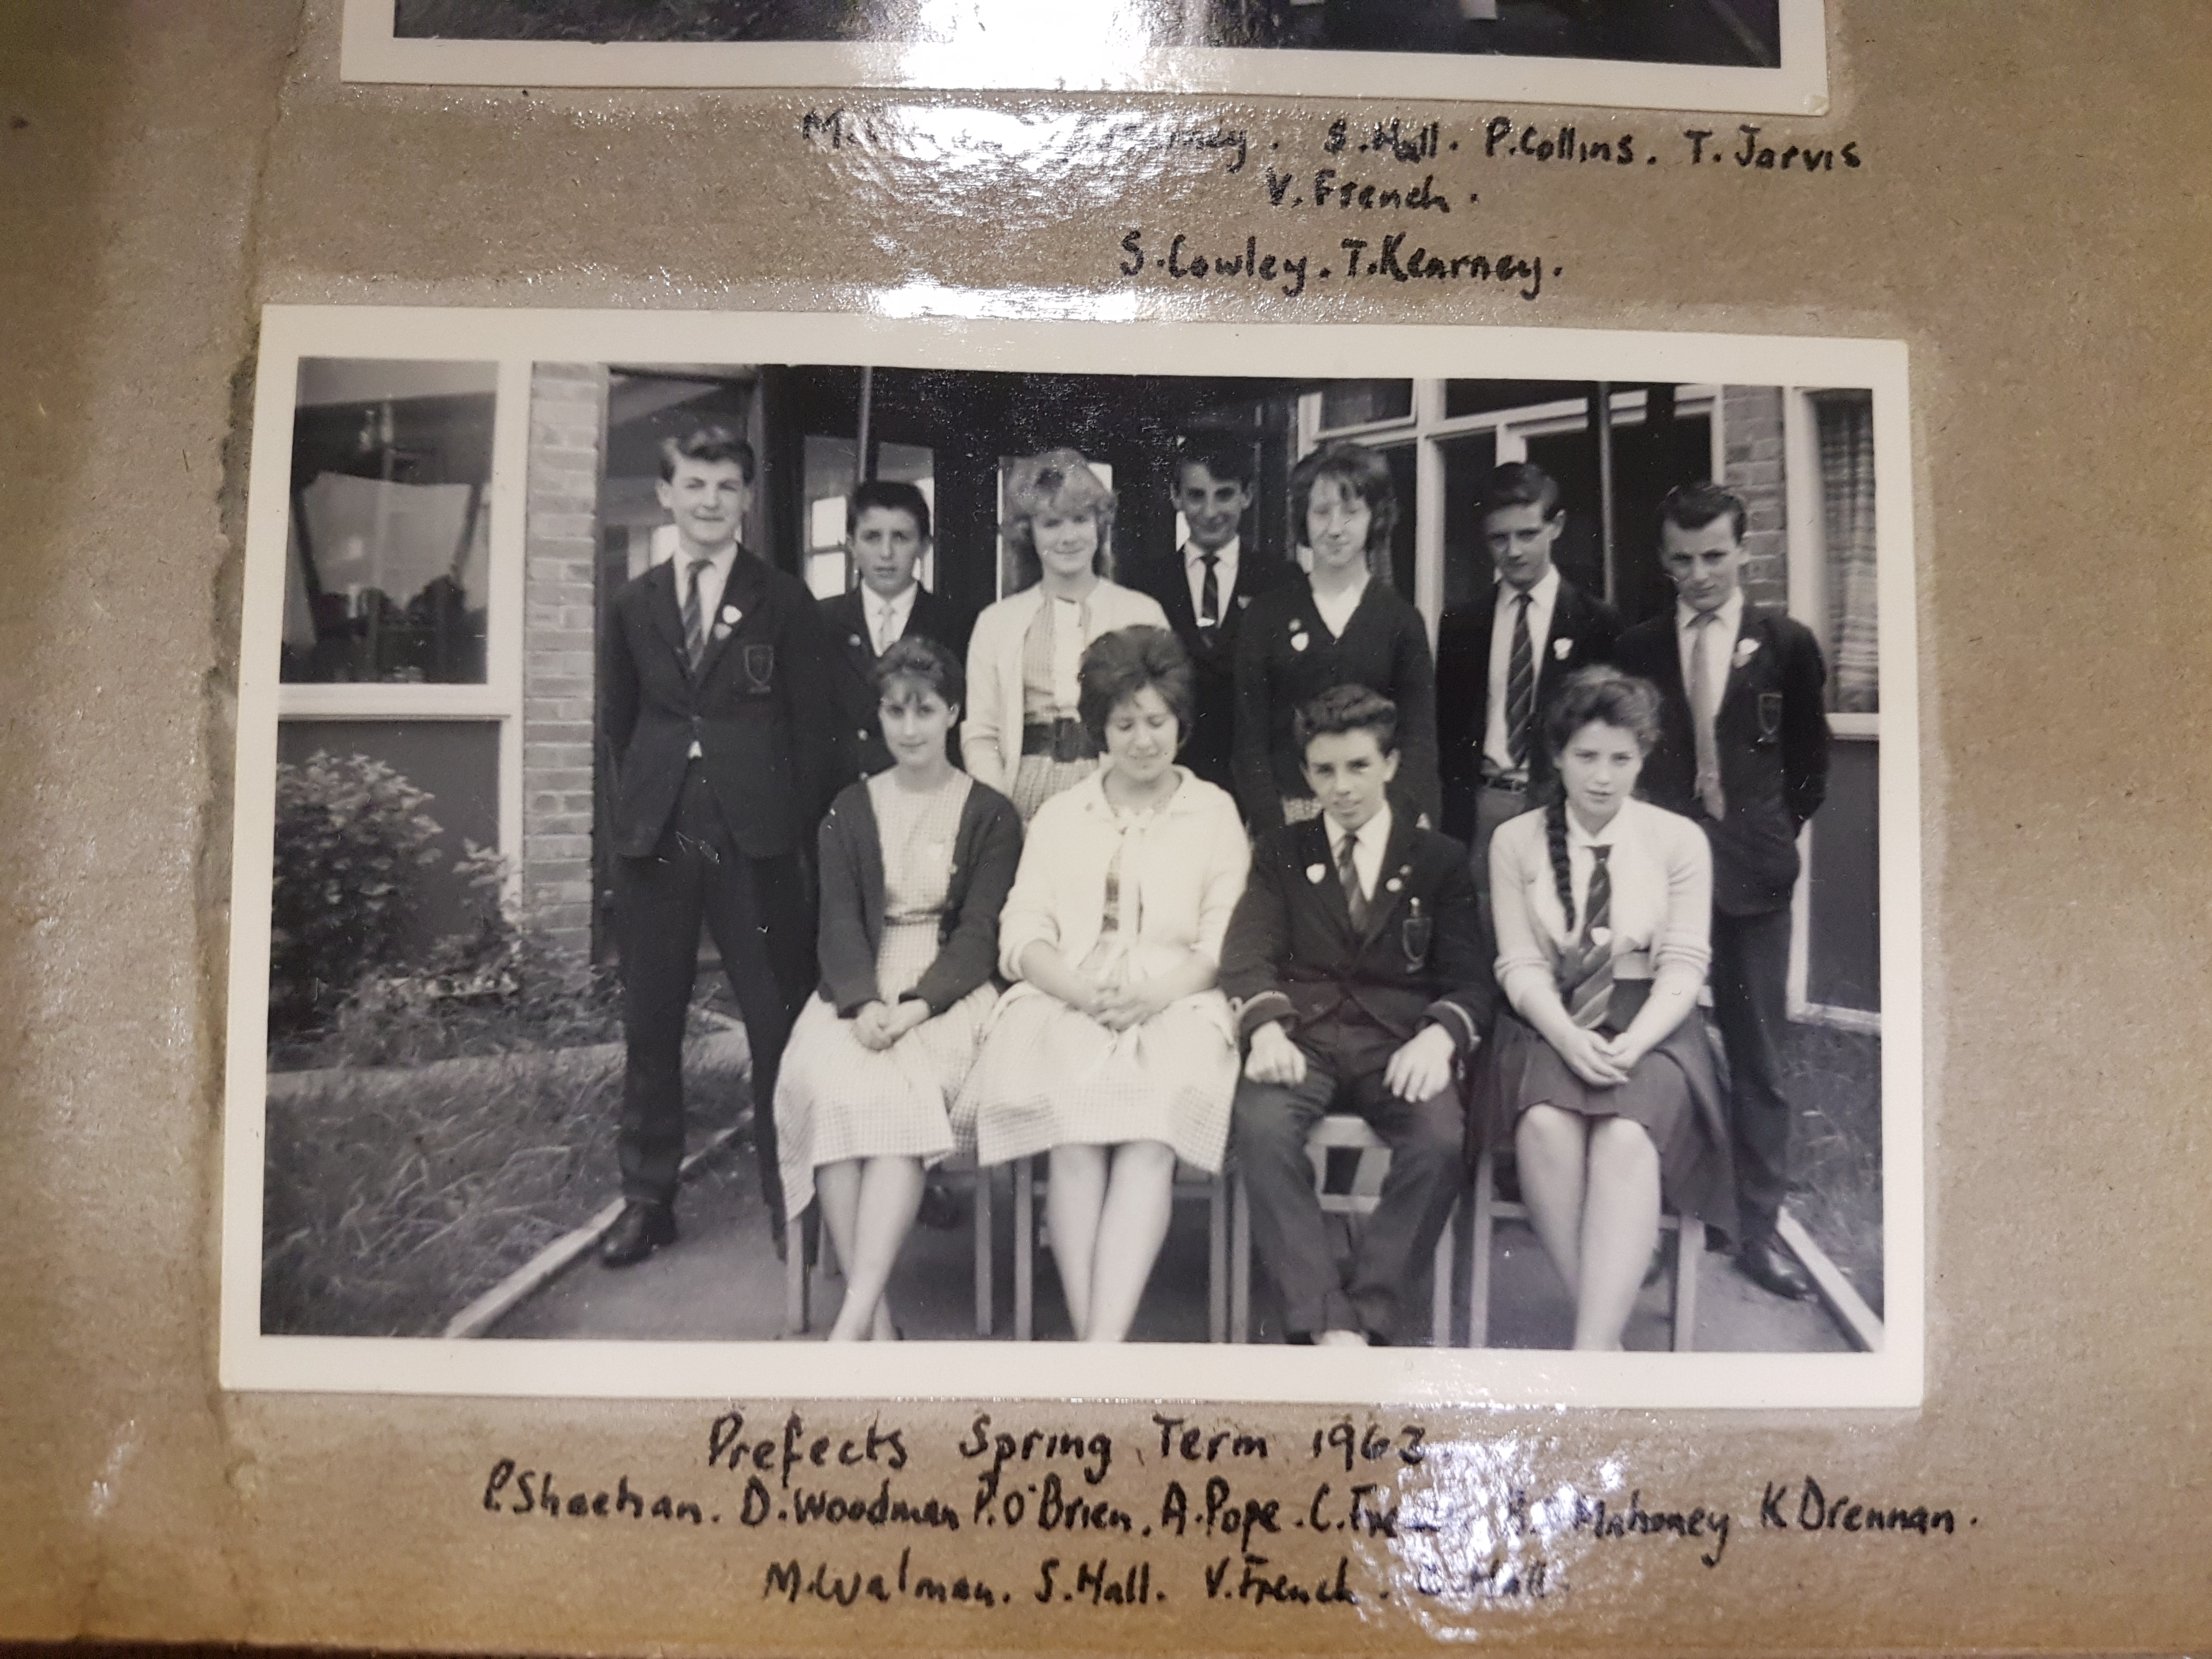 S.Hall. P.Collins. T. Jarvis
V. French.
S.Cowley. T.Kearney.
Prefects Spring Term 1963.
P.Sheehan. D.Woodman P.O'Brien. A.Pope. C. Mahoney K Drennan.
M.Walman. S.Hall. V.French. Hall